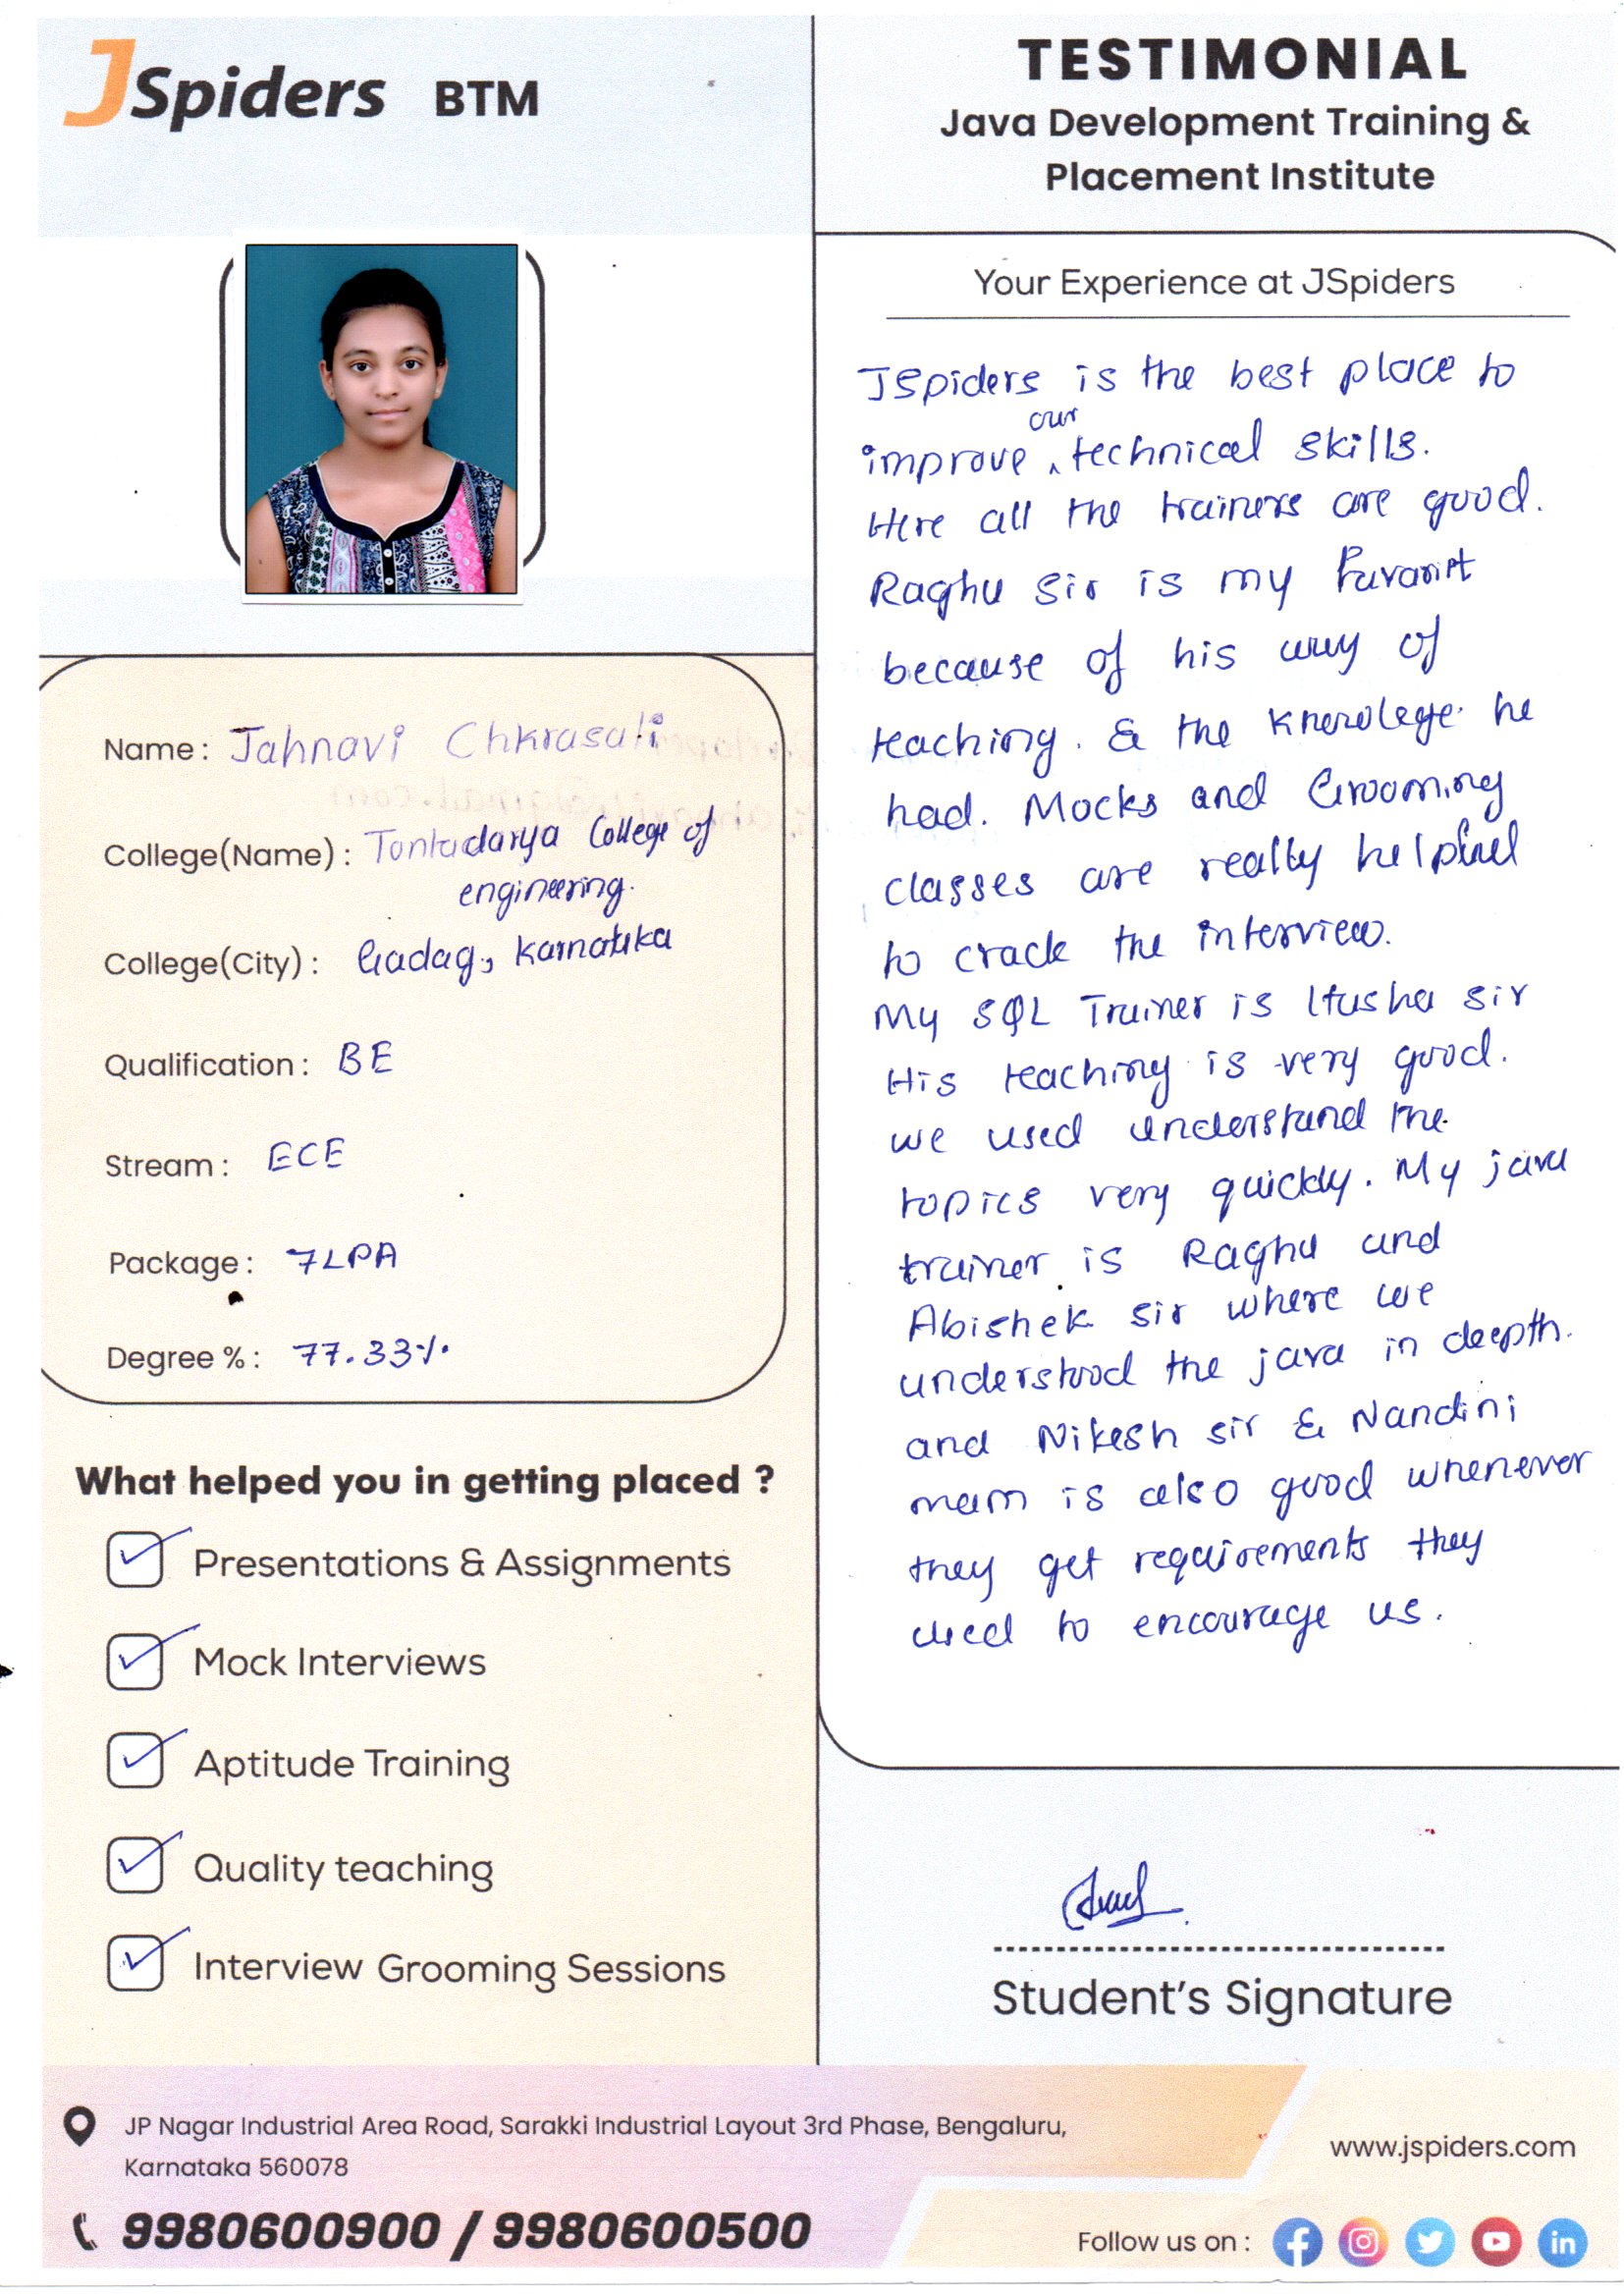 JSpiders BTM
TESTIMONIAL
Java Development Training &
Placement Institute
Name : Jahnavi Chkrasali
College(Name) : Tontadarya College of
engineering.
College(City) : Gadag, Karnataka
Qualification : BE
Stream : ECE
Package : 7LPA
Degree % : 77.33%
What helped you in getting placed ?
Presentations & Assignments
Mock Interviews
Aptitude Training
Quality teaching
Interview Grooming Sessions
Your Experience at JSpiders
JSpiders is the best place to
improve our technical skills.
Here all the trainers are good.
Raghu Sir is my
because of his way of
teaching. & the knowlege he
had. Mocks and Grooming
classes are really helpful
to crack the interview.
My SQL Trainer is sir
His teaching is very good.
we used understand the
topics very quickly. My java
trainer is Raghu and
Abishek sir where we
understood the java in deepth.
and Nikesh sir & Nandini
mam is also good whenever
they get requirements they
used to encourage us.
Student's Signature
JP Nagar Industrial Area Road, Sarakki Industrial Layout 3rd Phase, Bengaluru,
Karnataka 560078
9980600900 / 9980600500
www.jspiders.com
Follow us on :